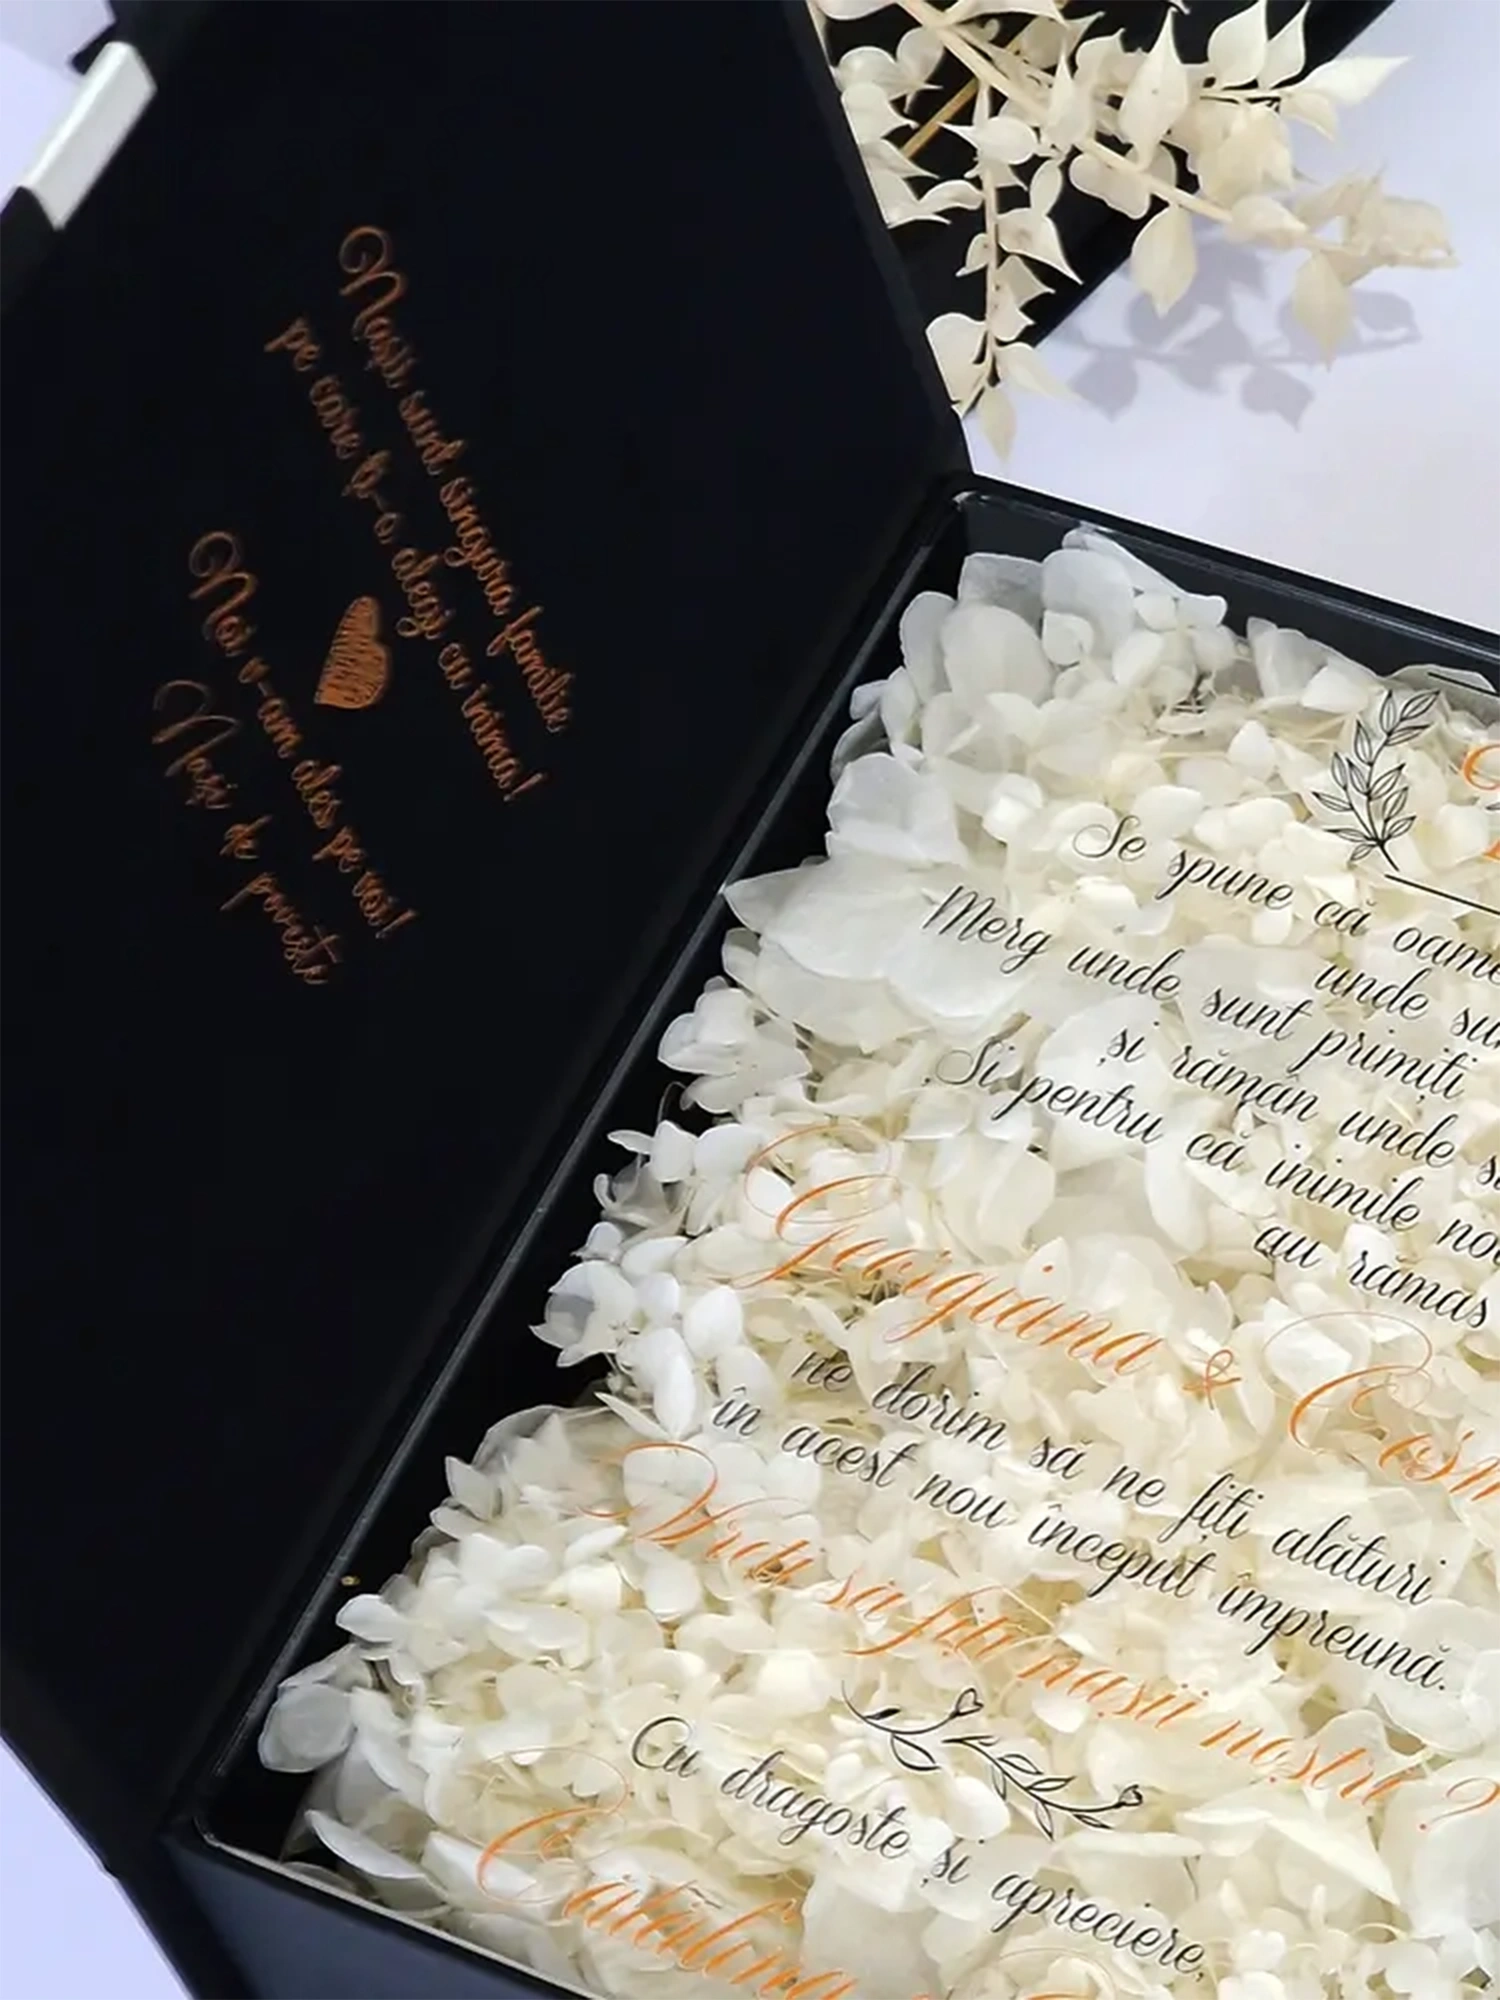 Nașii sunt singura familie
pe care ți-o alegi cu inima!
Noi v-am ales pe voi!
Nași de poveste
Se spune că oame
unde su
Merg unde sunt primiți
și rămân unde s
Și pentru că inimile no
au rămas
Georgiana & Cosm
ne dorim să ne fiți alături
în acest nou început împreună.
Vreți să fiți nașii noștri ?
Cu dragoste și apreciere,
Cătălina